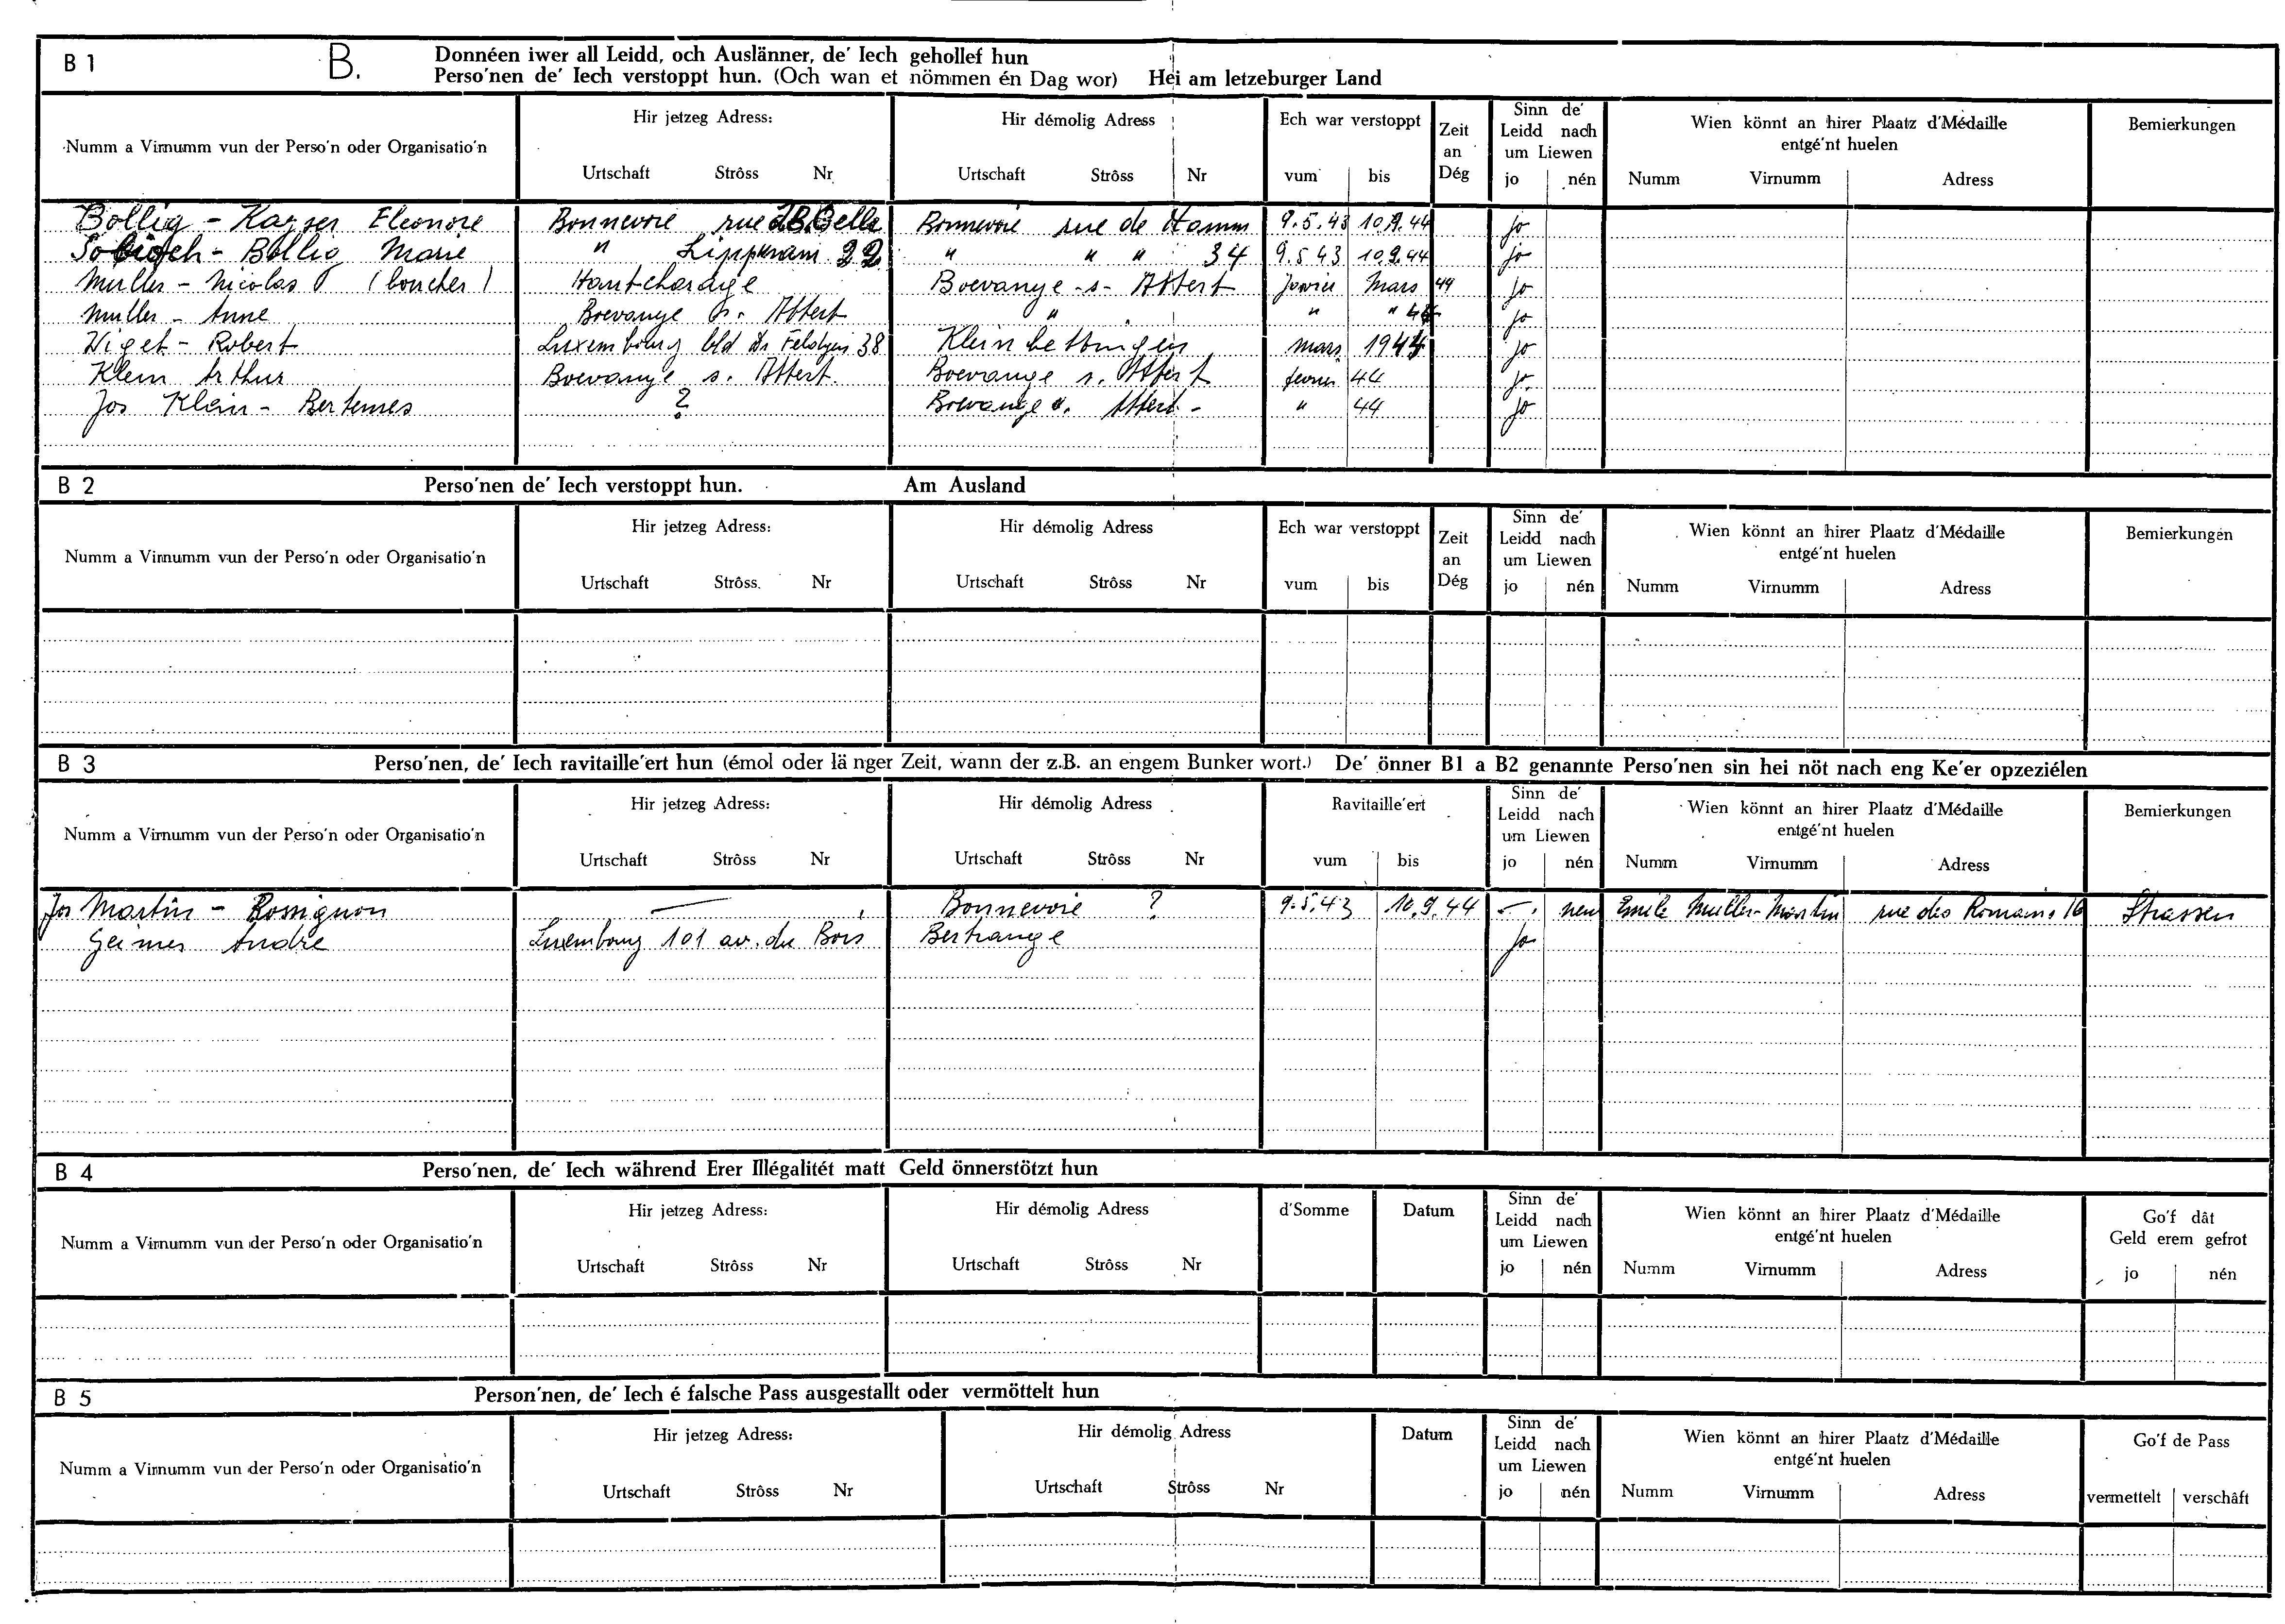 B 1 B. Donnéen iwer all Leidd, och Auslänner, de' Iech gehollef hun
Perso'nen de' Iech verstoppt hun. (Och wan et nömmen én Dag wor) Hei am letzeburger Land
Numm a Virnumm vun der Perso'n oder Organisatio'n
Hir jetzeg Adress:
Urtschaft Strôss Nr
Hir démolig Adress
Urtschaft Strôss Nr
Ech war verstoppt
vum bis
Zeit
an
Dég
Sinn de'
Leidd nach
um Liewen
jo nén
Wien könnt an hirer Plaatz d'Médaille
entgé'nt huelen
Numm Virnumm Adress
Bemierkungen
Bollig - Kayser Eleonore Bonnevoie rue J.B. Gelle Bonnevoie rue de Hamm 9.5.43 10.9.44 jo
Bollig Marie " Lippmann 22 " " " 34 9.5.43 10.9.44 jo
Muller - Nicolas (boucher) Hautcharage Boevange -s- Attert Janvier Mars 44 jo
Muller - Anne Boevange s. Attert " " " 44 jo
Robert Luxembourg bld Dr 38 Kleinbettingen mars 1944 jo
Klein Arthur Boevange s. Attert. Boevange s. Attert fevrier 44 jo
Jos Klein - Bertemes ? Boevange s. Attert - " 44 jo
B 2 Perso'nen de' Iech verstoppt hun. Am Ausland
Numm a Virnumm vun der Perso'n oder Organisatio'n
Hir jetzeg Adress:
Urtschaft Strôss. Nr
Hir démolig Adress
Urtschaft Strôss Nr
Ech war verstoppt
vum bis
Zeit
an
Dég
Sinn de'
Leidd nach
um Liewen
jo nén
Wien könnt an hirer Plaatz d'Médaille
entgé'nt huelen
Numm Virnumm Adress
Bemierkungen
B 3 Perso'nen, de' Iech ravitaille'ert hun (émol oder länger Zeit, wann der z.B. an engem Bunker wort.) De' önner B1 a B2 genannte Perso'nen sin hei nöt nach eng Ke'er opzeziélen
Numm a Virnumm vun der Perso'n oder Organisatio'n
Hir jetzeg Adress:
Urtschaft Strôss Nr
Hir démolig Adress
Urtschaft Strôss Nr
Ravitaille'ert
vum bis
Sinn de'
Leidd nach
um Liewen
jo nén
Wien könnt an hirer Plaatz d'Médaille
entgé'nt huelen
Numm Virnumm Adress
Bemierkungen
Jos Martin - Rossignon — Bonnevoie ? 9.5.43 10.9.44 -. nen Emile Muller-Martin rue des Romains 16 Strassen
Geimer André Luxembourg 101 av. du Bois Bertrange jo
B 4 Perso'nen, de' Iech während Erer Illégalitét matt Geld önnerstötzt hun
Numm a Virnumm vun der Perso'n oder Organisatio'n
Hir jetzeg Adress:
Urtschaft Strôss Nr
Hir démolig Adress
Urtschaft Strôss Nr
d'Somme
Datum
Sinn de'
Leidd nach
um Liewen
jo nén
Wien könnt an hirer Plaatz d'Médaille
entgé'nt huelen
Numm Virnumm Adress
Go'f dât
Geld erem gefrot
jo nén
B 5 Person'nen, de' Iech é falsche Pass ausgestallt oder vermöttelt hun
Numm a Virnumm vun der Perso'n oder Organisatio'n
Hir jetzeg Adress:
Urtschaft Strôss Nr
Hir démolig Adress
Urtschaft Strôss Nr
Datum
Sinn de'
Leidd nach
um Liewen
jo nén
Wien könnt an hirer Plaatz d'Médaille
entgé'nt huelen
Numm Virnumm Adress
Go'f de Pass
vermettelt verschâft